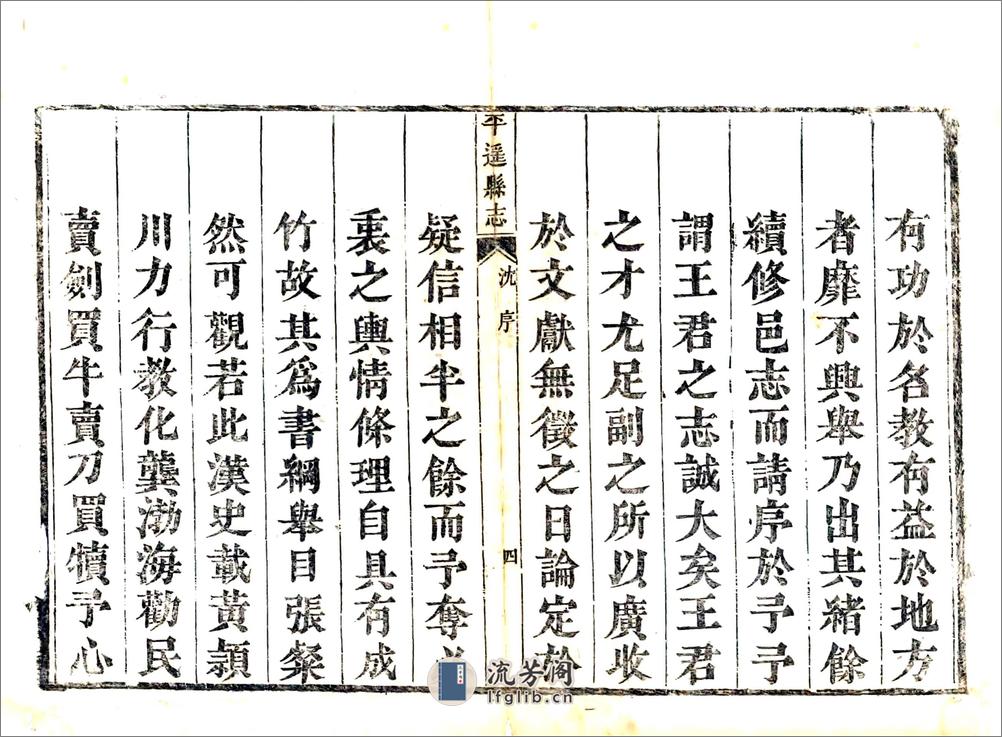 有功於名教有益於地方
者靡不興舉乃出其緒餘
續修邑志而請序於予予
謂王君之志誠大矣王君
之才尤足副之所以廣收
於文獻無徵之日論定於
平遥縣志
沈序
四
疑信相半之餘而予奪
裏之輿情條理自具有成
竹故其為書綱舉目張粲
然可觀若此漢史載黃潁
川力行教化龔渤海勸民
賣劍買牛賣刀買犢予心
流芳阁
lfglib.cn